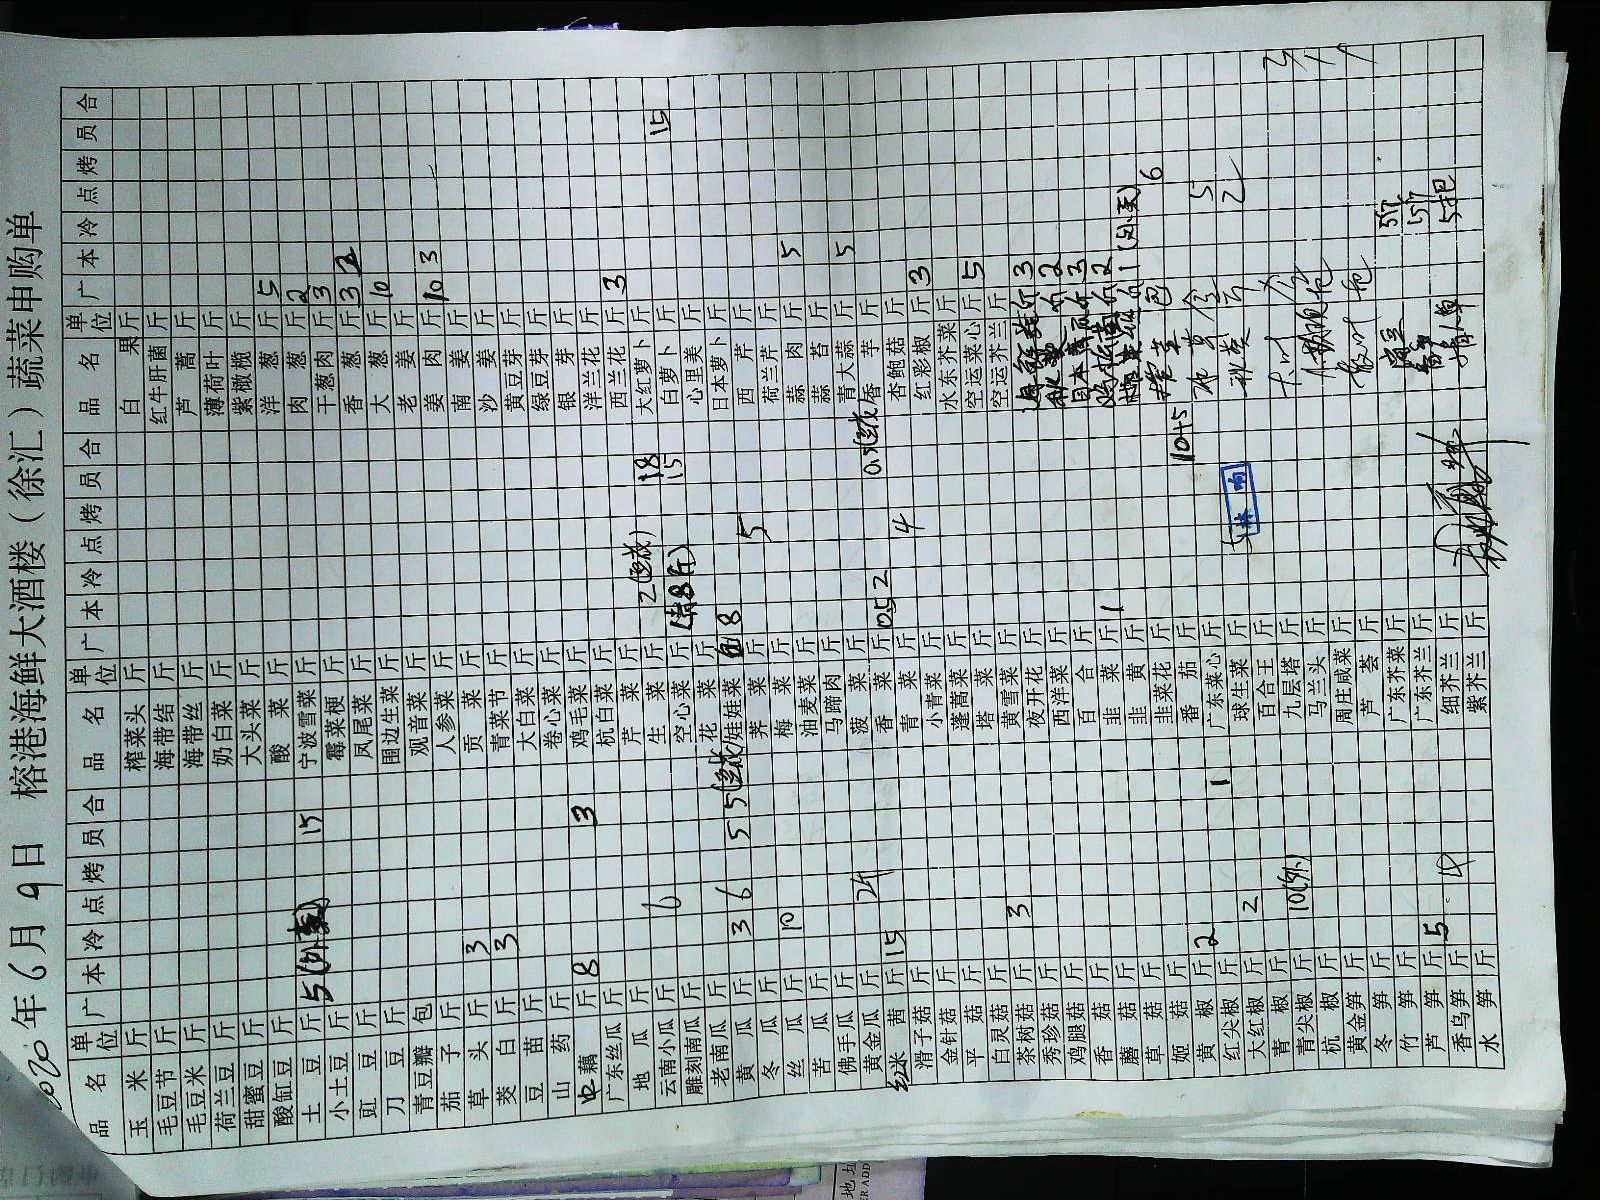 2020年6月9日 榕港海鲜大酒楼（徐汇）蔬菜申购单
品名 单位 广 本 冷 点 烤 员 合 品名 单位 广 本 冷 点 烤 员 合 品名 单位 广 本 冷 点 烤 员 合
玉米 斤 榨菜头 斤 白果 斤
毛豆节 斤 海带结 斤 红牛肝菌 斤
毛豆米 斤 海带丝 斤 芦蒿 斤
荷兰豆 斤 奶白菜 斤 薄荷叶 斤
甜蜜豆 斤 大头菜 斤 紫橄榄 斤
酸缸豆 斤 酸菜 斤 洋葱 斤 5
土豆 斤 5 15 宁波雪菜 斤 肉葱 斤 2
小土豆 斤 霉菜梗 斤 干葱肉 斤 3
豇豆 斤 凤尾菜 斤 香葱 斤 3 2
刀豆 斤 围边生菜 斤 大葱 斤 10
青豆瓣 包 观音菜 斤 老姜 斤
茄子 斤 人参菜 斤 姜肉 斤 10 3
草头 斤 3 贡菜 斤 南姜 斤
茭白 斤 3 青菜节 斤 沙姜 斤
豆苗 斤 大白菜 斤 黄豆芽 斤
山药 斤 卷心菜 斤 绿豆芽 斤
中藕 斤 8 3 鸡毛菜 斤 银芽 斤
广东丝瓜 斤 杭白菜 斤 洋兰花 斤
地瓜 斤 芹菜 斤 西兰花 斤 3
云南小瓜 斤 6 生菜 斤 2 18 大红萝卜 斤
雕刻南瓜 斤 空心菜 斤 15 白萝卜 斤 15
老南瓜 斤 花菜 斤 心里美 斤
黄瓜 斤 3 6 5 5 娃娃菜 8 日本萝卜 斤
冬瓜 斤 荠菜 斤 5 西芹 斤
丝瓜 斤 10 梅菜 斤 荷兰芹 斤
苦瓜 斤 油麦菜 斤 蒜肉 斤 5
佛手瓜 斤 马蹄肉 斤 蒜苔 斤
黄金瓜 斤 菠菜 斤 青大蒜 斤 5
红米茜 斤 15 香菜 斤 0.5 2 0.5 香芋 斤
滑子菇 斤 青菜 斤 4 杏鲍菇 斤
金针菇 斤 小青菜 斤 红彩椒 斤 3
平菇 斤 蓬蒿菜 斤 水东芥菜 斤
白灵菇 斤 塔菜 斤 空运菜心 斤 5
茶树菇 斤 3 黄雪菜 斤 空运芥兰 斤
秀珍菇 斤 夜开花 斤 3
鸡腿菇 斤 西洋菜 斤 2
香菇 斤 百合 斤 3
蘑菇 斤 韭菜 斤 1 2
草菇 斤 韭黄 斤 1
姬菇 斤 韭菜花 斤 包 6
黄椒 斤 2 番茄 斤 10+5
红尖椒 斤 1 广东菜心 斤 5
大红椒 斤 2 球生菜 斤 2
青椒 斤 百合王 斤
青尖椒 斤 10(外) 九层塔 斤
杭椒 斤 马兰头 斤
黄金笋 斤 周庄咸菜 斤
冬笋 斤 芦荟 斤
竹笋 斤 广东芥菜 斤
芦笋 斤 5 广东芥兰 斤
香乌笋 斤 细芥兰 斤 5把
水笋 斤 紫芥兰 斤